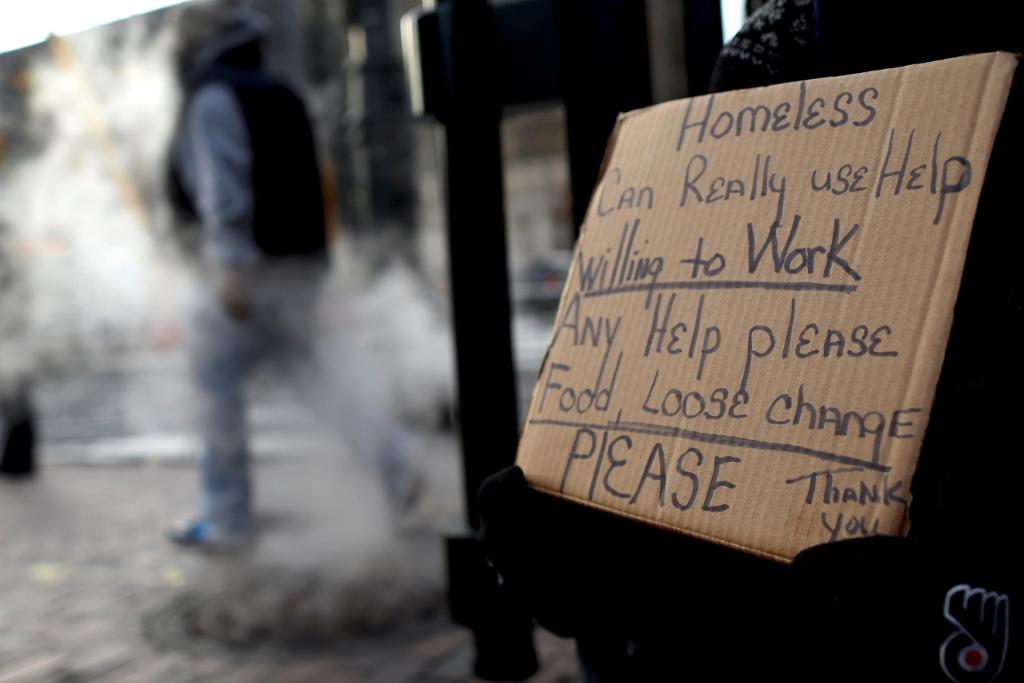 Homeless
Can Really use Help
Willing to Work
Any Help please
Food, Loose change
PlEASE Thank
you